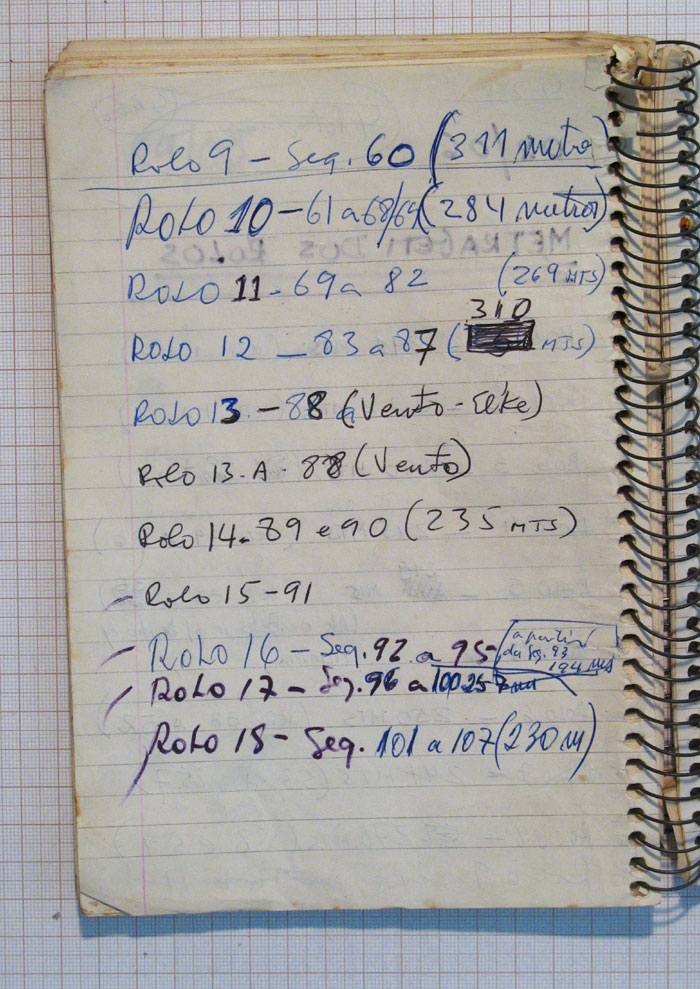 Rolo 9 - Seq. 60 (311 metros)
ROLO 10 - 61 a 68/69 (284 metros)
ROLO 11 - 69 a 82 (269 MTS)
310
ROLO 12 - 83 a 87 ( MTS)
ROLO 13 - 88 (Vento - Elke)
Rolo 13.A - 88 (Vento)
Rolo 14 - 89 e 90 (235 MTS)
- Rolo 15 - 91
- ROLO 16 - Seq. 92 a 95 - a partir da Seq. 93 194 mts
/ ROLO 17 - Seq. 96 a 100 257 mts
/ ROLO 18 - Seq. 101 a 107 (230 m)
METRAGEM DOS ROLOS